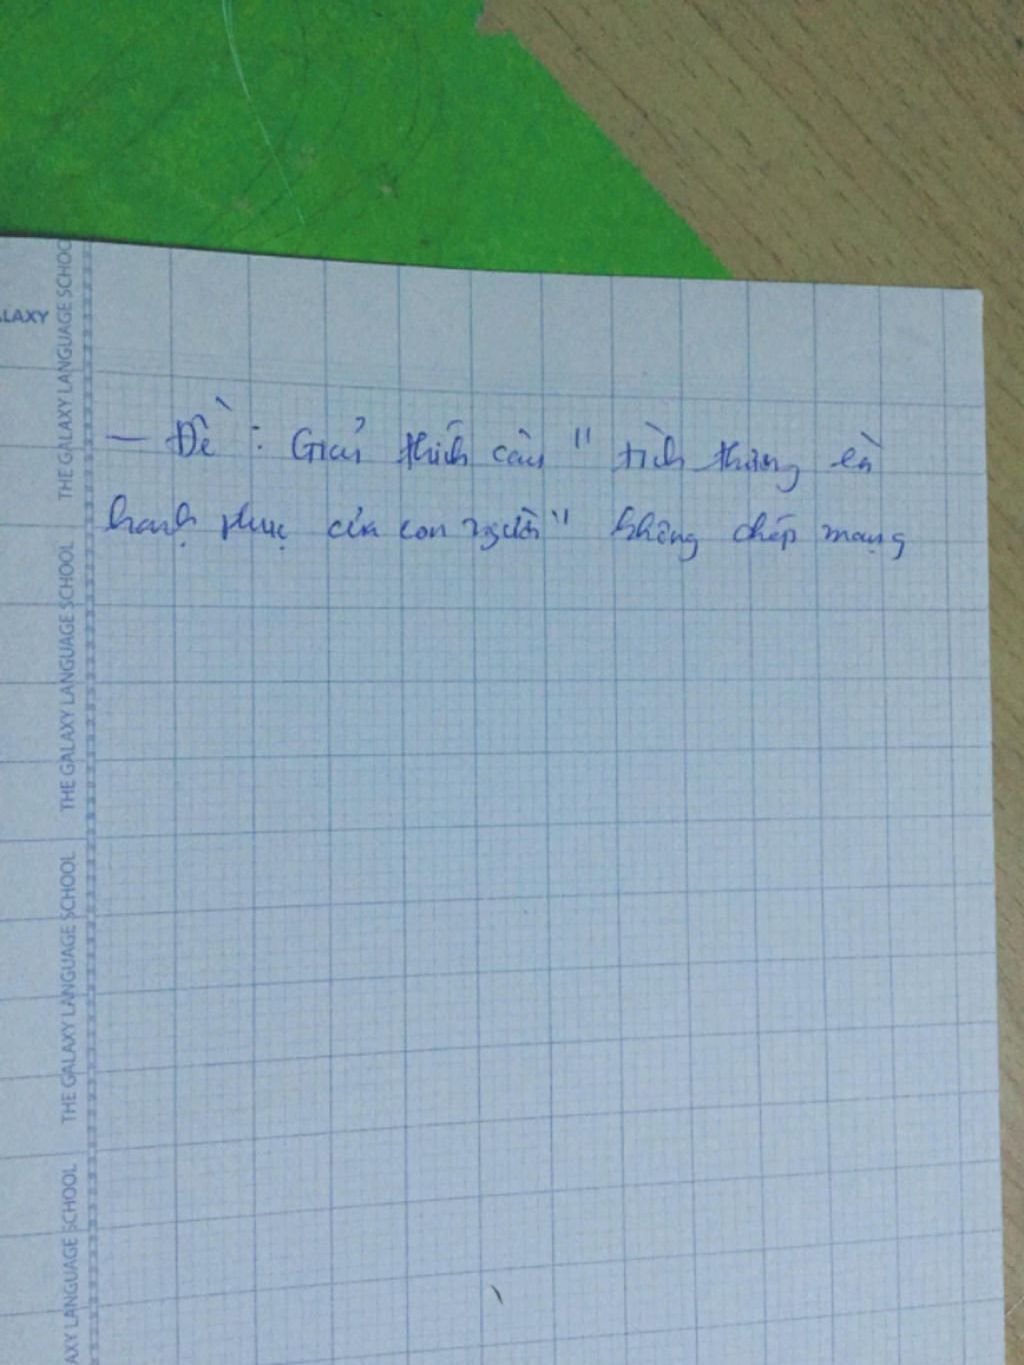 LAXY
THE GALAXY LANGUAGE SCHOOL
THE GALAXY LANGUAGE SCHOOL
THE GALAXY LANGUAGE SCHOOL
AXY LANGUAGE SCHOOL
— Đề : Giải thích câu " tình thương là
hạnh phúc của con người" không chép mạng